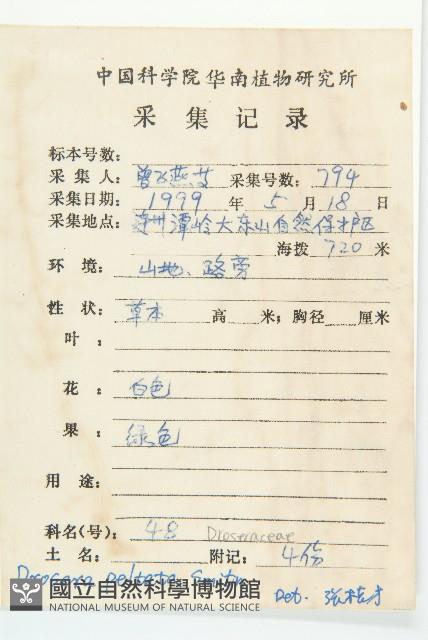 中国科学院华南植物研究所
采集记录
标本号数：
采集人：曾飞燕 采集号数：794
采集日期：1999 年 5 月 18 日
采集地点：连州潭岭大东山自然保护区
海拨 720 米
环境：山地、路旁
性状：草本 高 米；胸径 厘米
叶：
花：白色
果：绿色
用途：
科名(号)：48 Droseraceae
土名： 附记：4份
Drosera peltata Smith
Det. 张桂才
國立自然科學博物館
NATIONAL MUSEUM OF NATURAL SCIENCE